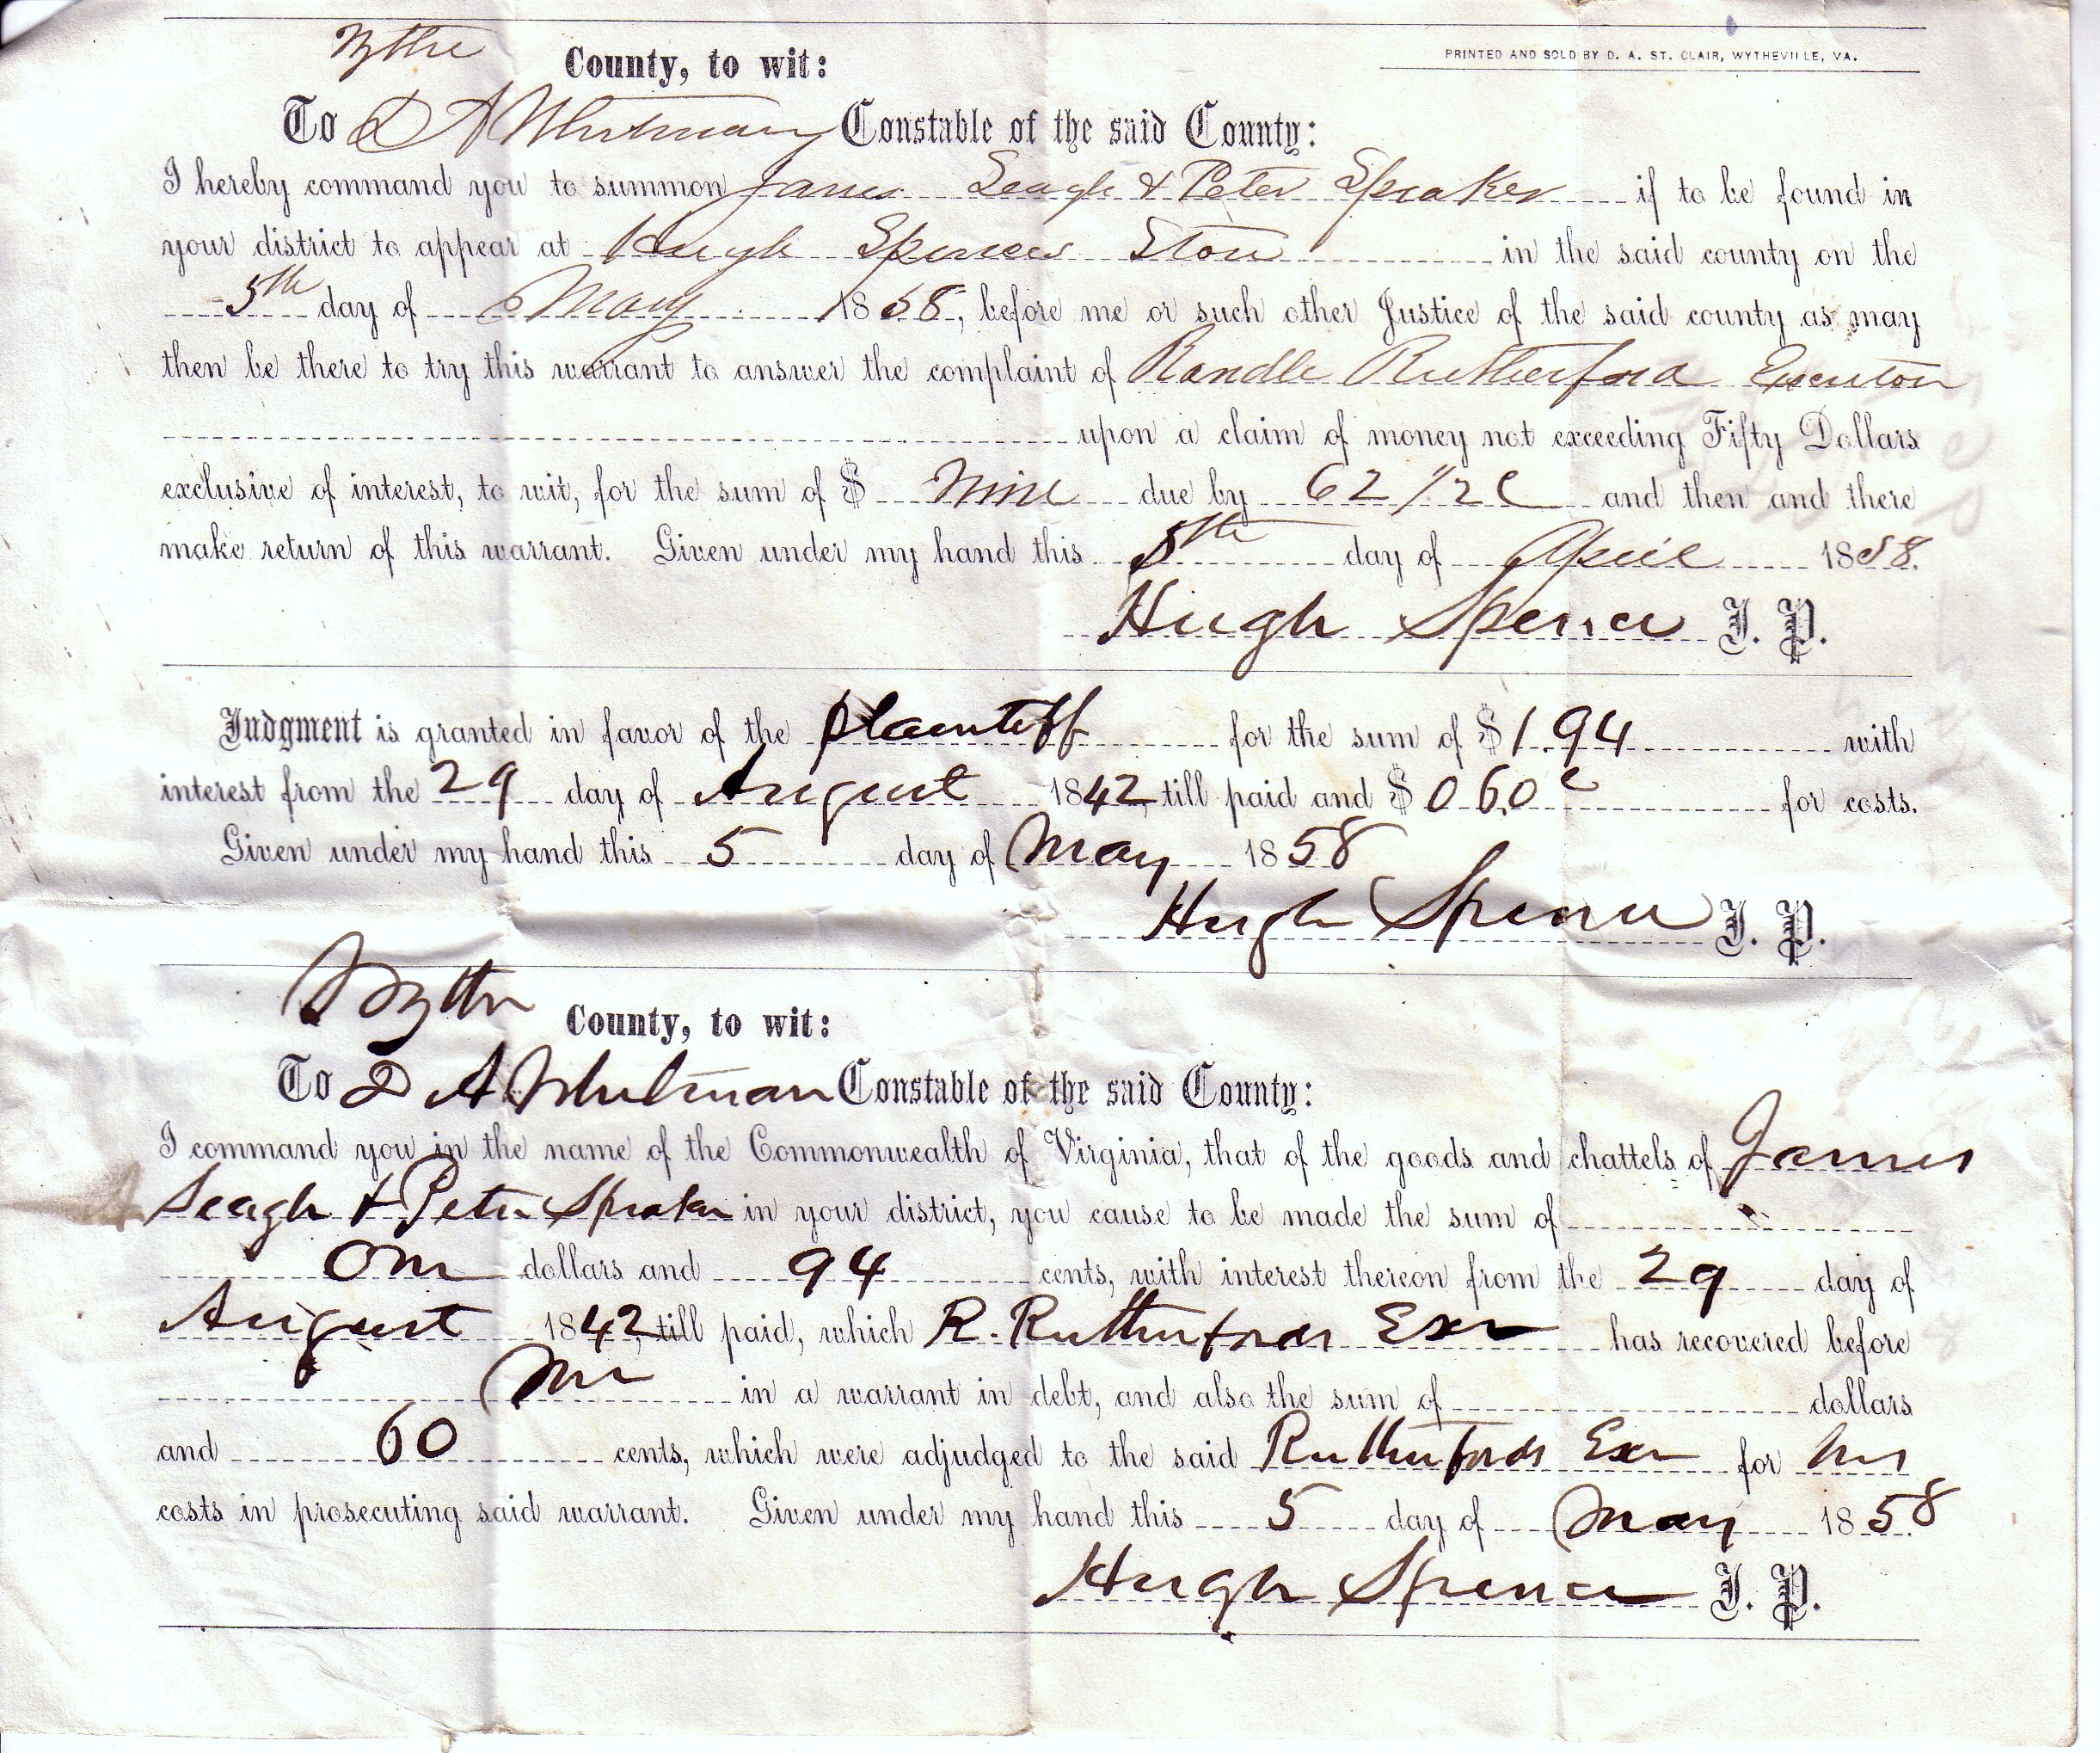 Wythe County, to wit:
PRINTED AND SOLD BY D. A. ST. CLAIR, WYTHEVILLE, VA.
To D A Whitman Constable of the said County:
I hereby command you to summon James Seagle & Peter Spraker if to be found in
your district to appear at Hugh Spences Store in the said county on the
5th day of May 1858, before me or such other Justice of the said county as may
then be there to try this warrant to answer the complaint of Randle Rutherford Executor
upon a claim of money not exceeding Fifty Dollars
exclusive of interest, to wit, for the sum of $ Nine due by 62 1/2 c and then and there
make return of this warrant. Given under my hand this 5th day of April 1858.
Hugh Spence J. P.
Judgment is granted in favor of the plaintiff for the sum of $ 1.94 with
interest from the 29 day of August 1842, till paid and $ 0 60 c for costs.
Given under my hand this 5 day of May 1858
Hugh Spence J. P.
Wythe County, to wit:
To D A Whitman Constable of the said County:
I command you in the name of the Commonwealth of Virginia, that of the goods and chattels of James
Seagle & Peter Spraker in your district, you cause to be made the sum of
One dollars and 94 cents, with interest thereon from the 29 day of
August 1842, till paid, which R. Rutherfords Exr has recovered before
Me in a warrant in debt, and also the sum of dollars
and 60 cents, which were adjudged to the said Rutherfords Exr for his
costs in prosecuting said warrant. Given under my hand this 5 day of May 1858
Hugh Spence J. P.